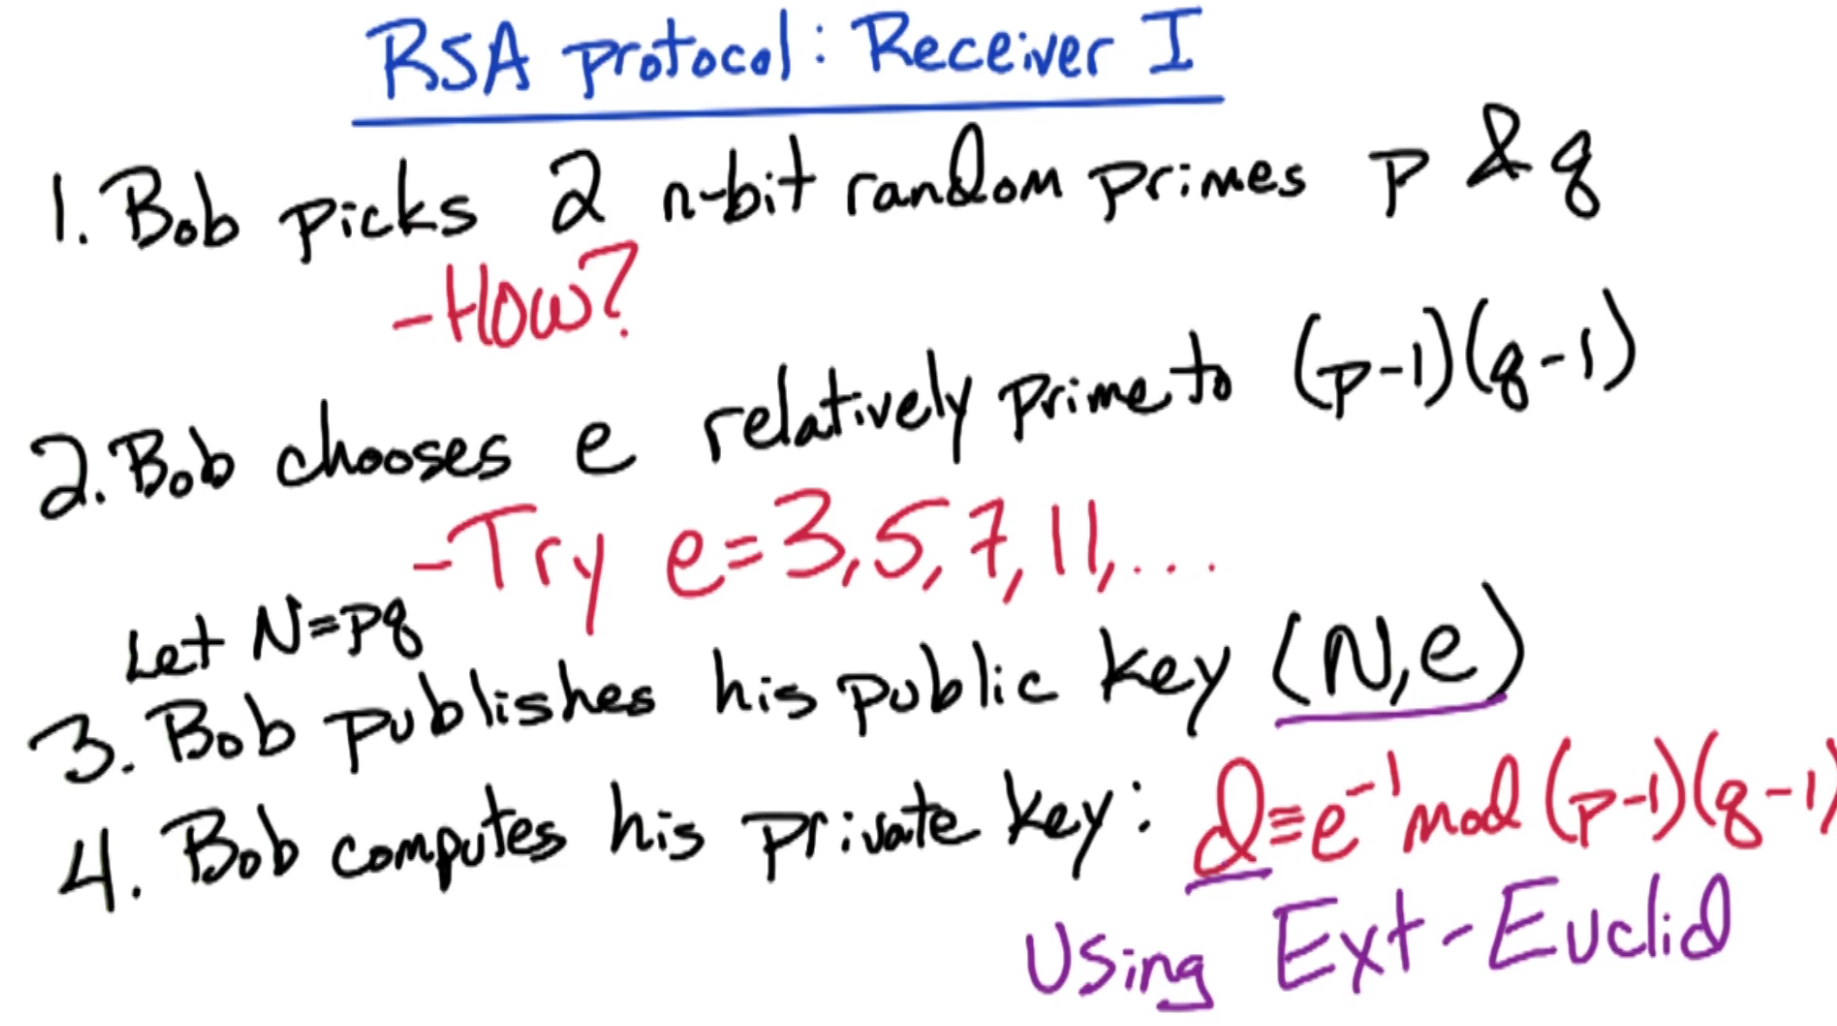 RSA protocol: Receiver I
1. Bob picks 2 n-bit random primes p & q
- How?
2. Bob chooses e relatively prime to (p-1)(q-1)
- Try e=3,5,7,11,...
Let N=pq
3. Bob publishes his public key (N,e)
4. Bob computes his private key: d≡e⁻¹ mod (p-1)(q-1)
Using Ext-Euclid